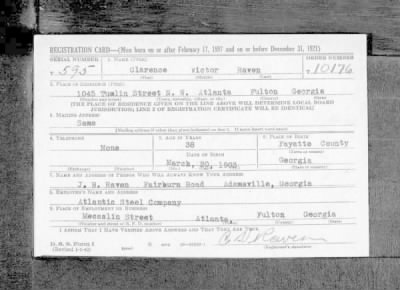 REGISTRATION CARD—(Men born on or after February 17, 1897 and on or before December 31, 1921)
SERIAL NUMBER 1. NAME (Print) ORDER NUMBER
T 595 Clarence Victor Haven T 10176
(First) (Middle) (Last)
2. PLACE OF RESIDENCE (Print)
1045 Tumlin Street N. W. Atlanta Fulton Georgia
(Number and street) (Town, township, village, or city) (County) (State)
[THE PLACE OF RESIDENCE GIVEN ON THE LINE ABOVE WILL DETERMINE LOCAL BOARD
JURISDICTION; LINE 2 OF REGISTRATION CERTIFICATE WILL BE IDENTICAL]
3. MAILING ADDRESS
Same
[Mailing address if other than place indicated on line 2. If same insert word same]
4. TELEPHONE 5. AGE IN YEARS 6. PLACE OF BIRTH
None 38 Fayette County
DATE OF BIRTH (Town or county)
March, 20, 1903 Georgia
(Exchange) (Number) (Mo.) (Day) (Yr.) (State or country)
7. NAME AND ADDRESS OF PERSON WHO WILL ALWAYS KNOW YOUR ADDRESS
J. H. Haven Fairburn Road Adamsville, Georgia
8. EMPLOYER'S NAME AND ADDRESS
Atlantic Steel Company
9. PLACE OF EMPLOYMENT OR BUSINESS
Street Atlanta, Fulton Georgia
(Number and street or R. F. D. number) (Town) (County) (State)
I AFFIRM THAT I HAVE VERIFIED ABOVE ANSWERS AND THAT THEY ARE TRUE.
D. S. S. Form 1
(Revised 1-1-42) (over) Haven
(Registrant's signature)